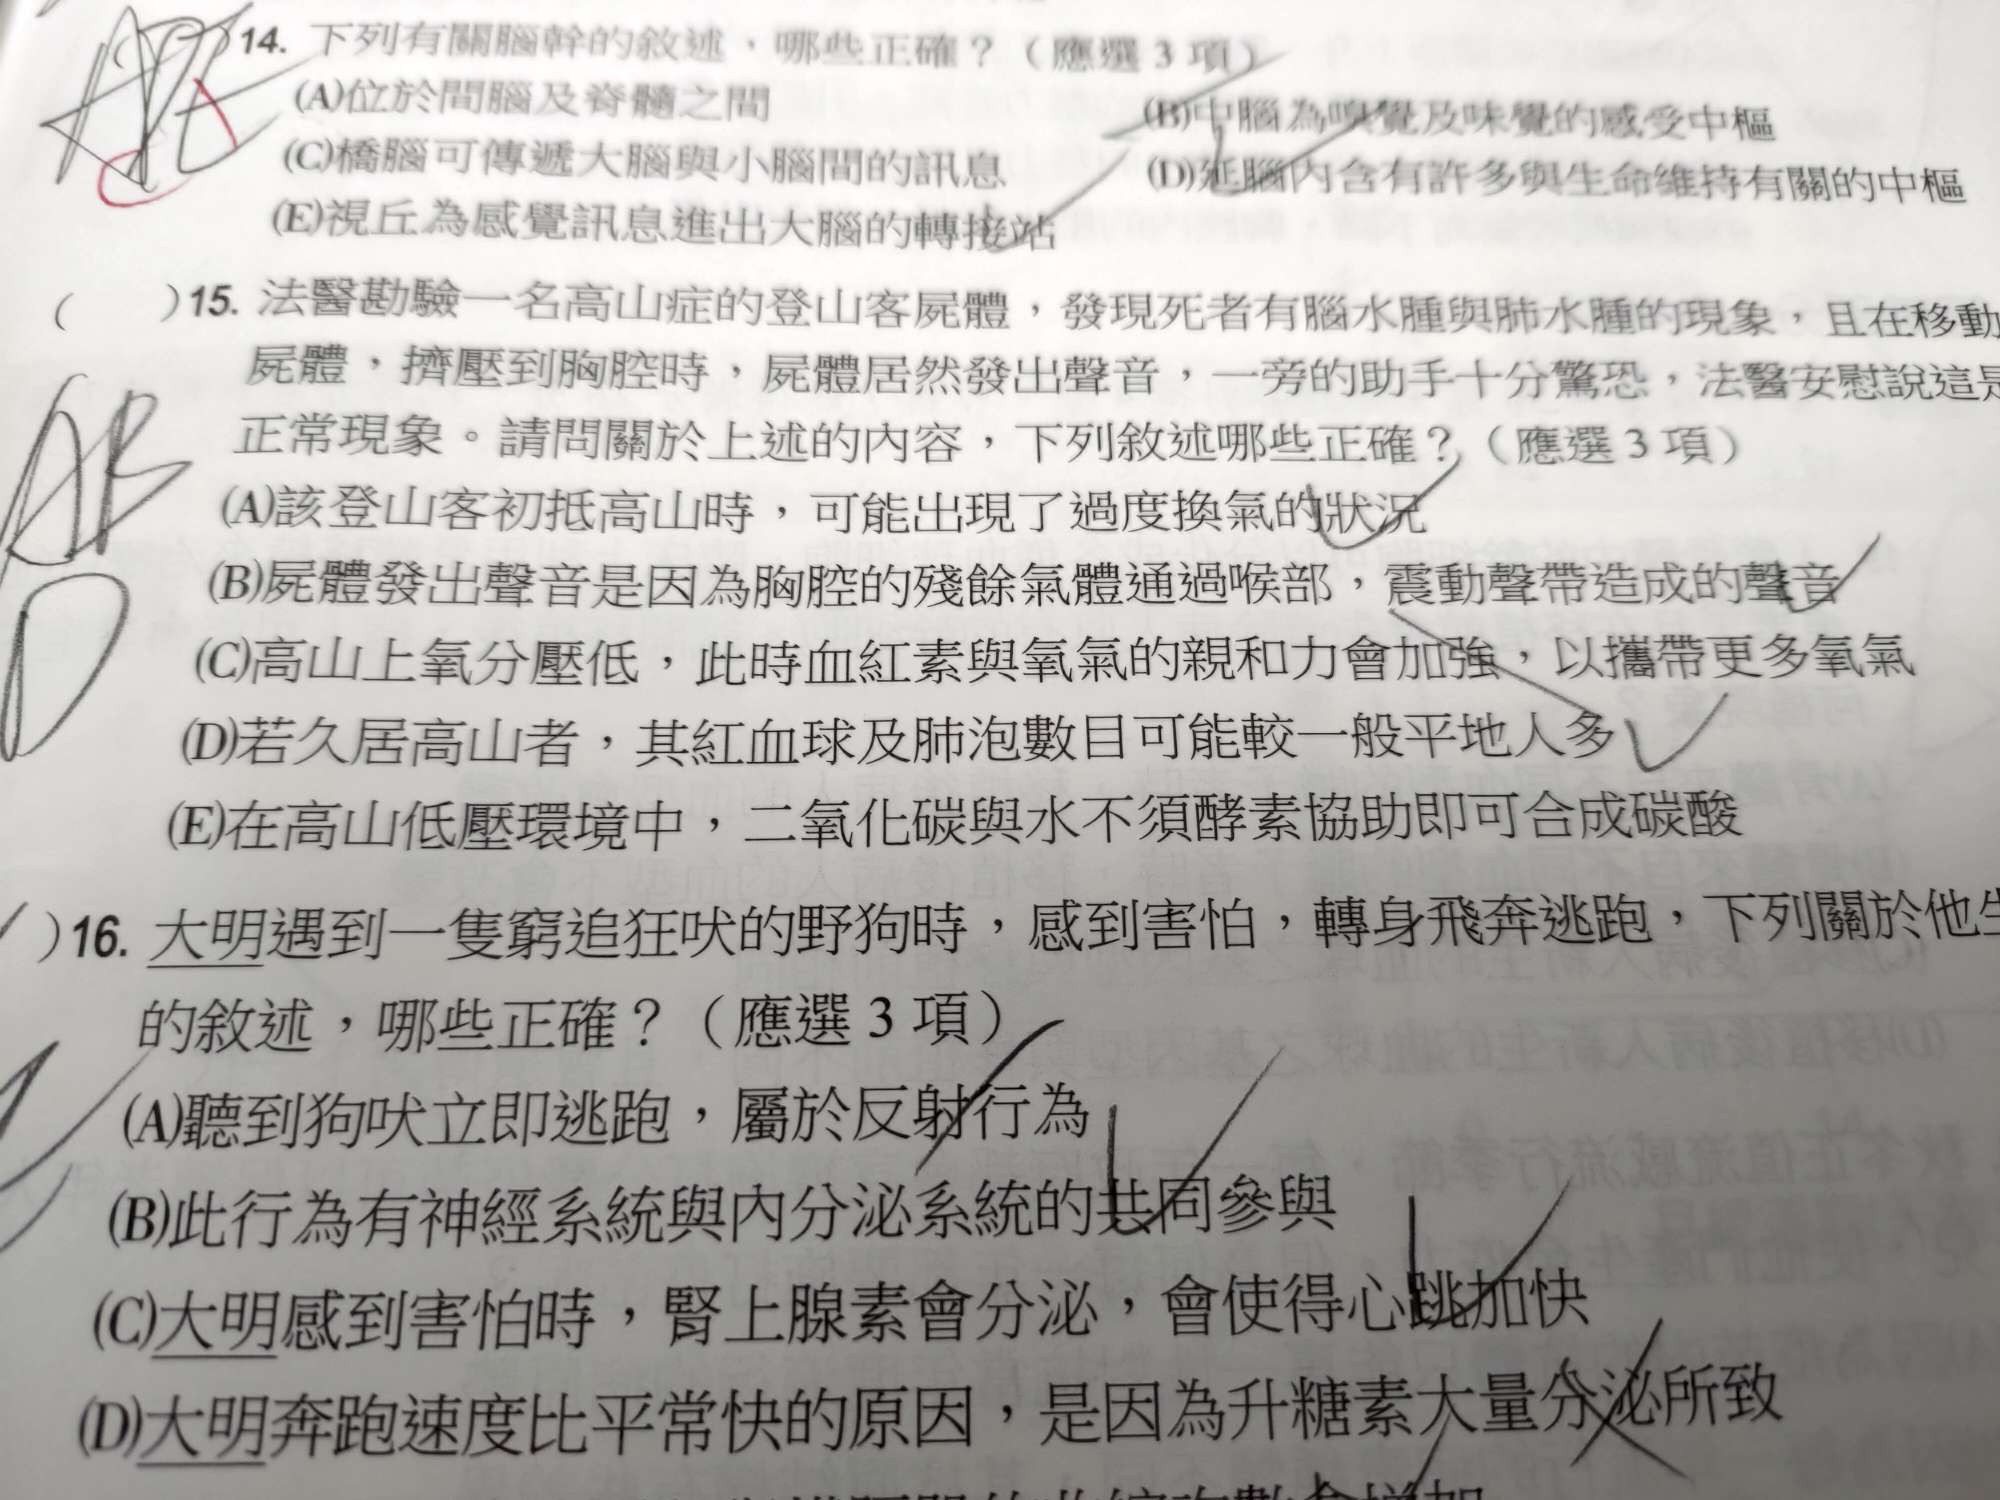 )14. 下列有關腦幹的敘述，哪些正確？（應選 3 項）
(A)位於間腦及脊髓之間
(B)中腦為嗅覺及味覺的感受中樞
(C)橋腦可傳遞大腦與小腦間的訊息
(D)延腦內含有許多與生命維持有關的中樞
(E)視丘為感覺訊息進出大腦的轉接站
(　)15. 法醫勘驗一名高山症的登山客屍體，發現死者有腦水腫與肺水腫的現象，且在移動
屍體，擠壓到胸腔時，屍體居然發出聲音，一旁的助手十分驚恐，法醫安慰說這是
正常現象。請問關於上述的內容，下列敘述哪些正確？（應選 3 項）
(A)該登山客初抵高山時，可能出現了過度換氣的狀況
(B)屍體發出聲音是因為胸腔的殘餘氣體通過喉部，震動聲帶造成的聲音
ABD
(C)高山上氧分壓低，此時血紅素與氧氣的親和力會加強，以攜帶更多氧氣
(D)若久居高山者，其紅血球及肺泡數目可能較一般平地人多
(E)在高山低壓環境中，二氧化碳與水不須酵素協助即可合成碳酸
)16. 大明遇到一隻窮追狂吠的野狗時，感到害怕，轉身飛奔逃跑，下列關於他生
的敘述，哪些正確？（應選 3 項）
(A)聽到狗吠立即逃跑，屬於反射行為
(B)此行為有神經系統與內分泌系統的共同參與
(C)大明感到害怕時，腎上腺素會分泌，會使得心跳加快
(D)大明奔跑速度比平常快的原因，是因為升糖素大量分泌所致